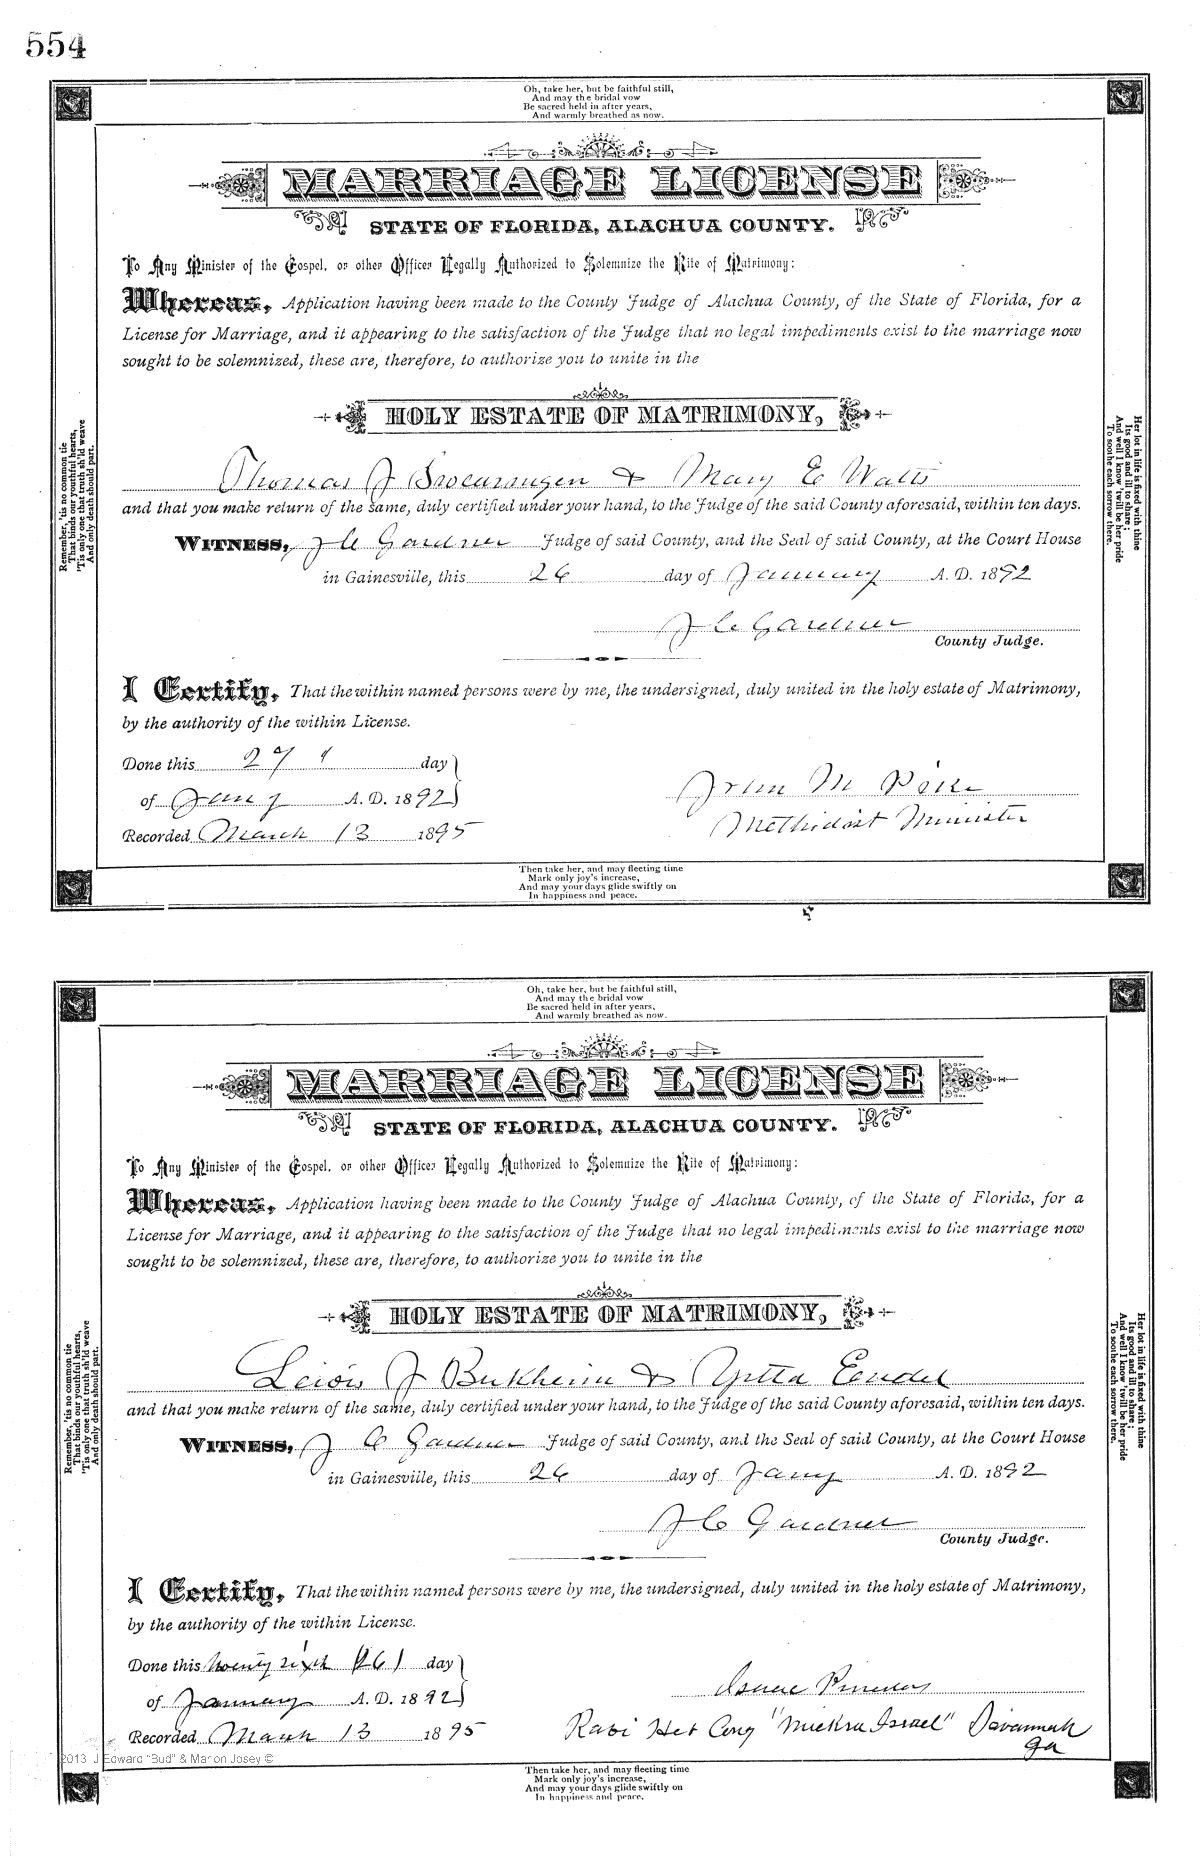 554
Oh, take her, but be faithful still,
And may the bridal vow
Be sacred held in after years,
And warmly breathed as now.
MARRIAGE LICENSE
STATE OF FLORIDA, ALACHUA COUNTY.
To Any Minister of the Gospel, or other Officer Legally Authorized to Solemnize the Rite of Matrimony:
Whereas, Application having been made to the County Judge of Alachua County, of the State of Florida, for a
License for Marriage, and it appearing to the satisfaction of the Judge that no legal impediments exist to the marriage now
sought to be solemnized, these are, therefore, to authorize you to unite in the
HOLY ESTATE OF MATRIMONY,
Thomas J & Mary E Watts
and that you make return of the same, duly certified under your hand, to the Judge of the said County aforesaid, within ten days.
WITNESS, J C Gardner Judge of said County, and the Seal of said County, at the Court House
in Gainesville, this 26 day of January A. D. 1892
J C Gardner
County Judge.
I Certify, That the within named persons were by me, the undersigned, duly united in the holy estate of Matrimony,
by the authority of the within License.
Done this 27 day
of Jany A. D. 1892
Recorded March 13 1895
John M
Methodist Minister
Remember, 'tis no common tie
That binds our youthful hearts,
'Tis only one that truth sh'ld weave
And only death should part.
Her lot in life is fixed with thine
Its good and ill to share;
And well I know 'twill be her pride
To soothe each sorrow there.
Then take her, and may fleeting time
Mark only joy's increase,
And may your days glide swiftly on
In happiness and peace.
Oh, take her, but be faithful still,
And may the bridal vow
Be sacred held in after years,
And warmly breathed as now.
MARRIAGE LICENSE
STATE OF FLORIDA, ALACHUA COUNTY.
To Any Minister of the Gospel, or other Officer Legally Authorized to Solemnize the Rite of Matrimony:
Whereas, Application having been made to the County Judge of Alachua County, of the State of Florida, for a
License for Marriage, and it appearing to the satisfaction of the Judge that no legal impediments exist to the marriage now
sought to be solemnized, these are, therefore, to authorize you to unite in the
HOLY ESTATE OF MATRIMONY,
J Burkheim & Yetta Endel
and that you make return of the same, duly certified under your hand, to the Judge of the said County aforesaid, within ten days.
WITNESS, J C Gardner Judge of said County, and the Seal of said County, at the Court House
in Gainesville, this 26 day of Jany A. D. 1892
J C Gardner
County Judge.
I Certify, That the within named persons were by me, the undersigned, duly united in the holy estate of Matrimony,
by the authority of the within License.
Done this twenty sixth (26) day
of January A. D. 1892
Recorded March 13 1895
Isaac
Rabi Heb Cong "Mickva Israel" Savannah
Ga
2013 J Edward "Bud" & Marion Josey ©
Remember, 'tis no common tie
That binds our youthful hearts,
'Tis only one that truth sh'ld weave
And only death should part.
Her lot in life is fixed with thine
Its good and ill to share;
And well I know 'twill be her pride
To soothe each sorrow there.
Then take her, and may fleeting time
Mark only joy's increase,
And may your days glide swiftly on
In happiness and peace.